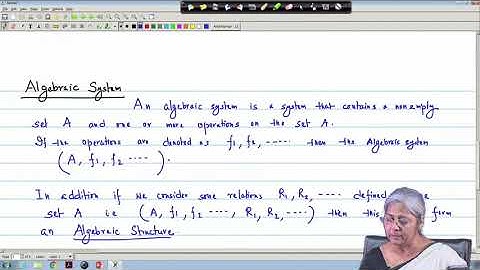 Algebraic System
An algebraic system is a system that contains a nonempty
set A and one or more operations on the set A.
If the operations are denoted as f1, f2, ..... then the Algebraic system
(A, f1, f2 ....).
In addition if we consider some relations R1, R2, .... defined
set A i.e (A, f1, f2 ...., R1, R2, ....) then this form
an Algebraic Structure